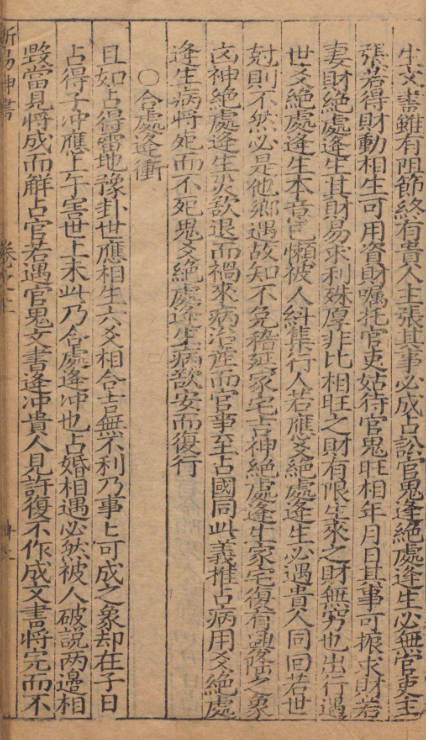 生文書雖有阻節終有貴人主張其事必成占訟官鬼逢絶處逢生必無官吏主
張若得財動相生可用資財嘱托官吏姑待官鬼旺相年月日其事可振求財若
妻財絶處逢生其財易求利殊厚非比相旺之財有限生來之財無窮也出行遇
世爻絶處逢生本意已懶被人糾集行人若應爻絶處逢生必遇貴人同回若世
尅則不然必是他鄉遇故知不免稽延家宅吉神絶處逢生家宅復有興隆之象
凶神絶處逢生災欲退而禍來病治產而官事至占國同此義推占病用爻絶處
逢生病將死而不死鬼爻絶處逢生病欲安而復行
○合處逢衝
且如占得雷地豫卦世應相生六爻相合吉無不利乃事上可成之象却在子日
占得子冲應上午害世上未此乃合處逢冲也占婚相遇必然被人破說两邊相
毀當見將成而觧占官若遇官鬼文書逢冲貴人見許復不作成文書將完而不
易神書